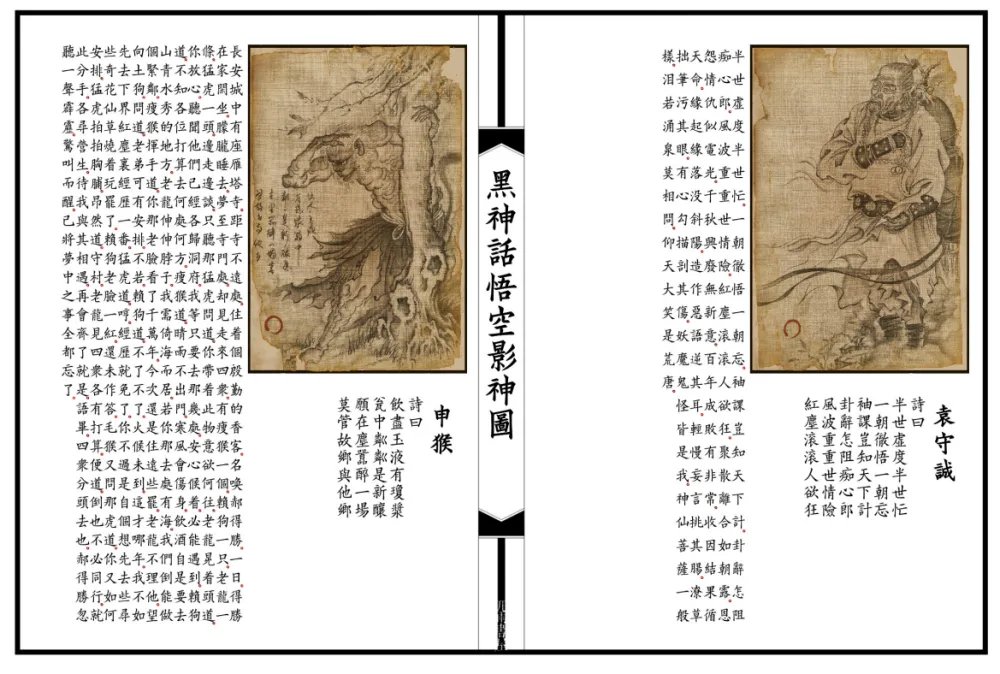 黑神話悟空影神圖
袁守誠
詩曰
半世虛度半世忙
一朝徹悟一朝忘
袖課豈知天下計
卦辭怎阻痴心郎
風波重重世情險
紅塵滾滾人欲狂
半世虛度半世忙一朝徹悟一朝忘袖課豈知天下計卦辭怎阻
痴心郎風波重重世情險紅塵滾滾人欲狂聚散離合如朝露恩
怨情仇似電光千秋興廢無新意百年成敗有非常收因結果循
天命緣起緣落沒斜陽造作惡語逆其耳輕慢妄言挑其腸潦草
拙筆污其眼有心勾描剖其傷妖魔鬼怪皆是我神仙菩薩一般
樣泪若涌泉莫相問仰天大笑是荒唐
申猴
詩曰
飲盡玉液有瓊漿
瓮中鄰鄰是新釀
願在塵囂醉一場
莫管故鄉與他鄉
長安城中有座雁塔寺距寺不遠處住着個殷勤的香客名喚郝得勝一日得勝
在家閑坐朦朧睡去夢至寺門却見走來四衆有瘦猴一個賴狗一只老龍一
條猛虎一頭邊走邊談只聽那猛虎問道你帶着此物意欲何往老龍晃着頭道
你放心聽聞他們已經各歸洞府我等只要去那幾處安心候着必能遇到賴狗
道不知各位打算去何處何方瘦猴道晴雨不出門寒風會傷身飲酒自是要去
山青水秀的地方老龍伸伸脖子我需倚海而居若那去處有海我們倒能做
個緊鄰瘦猴揮手道你那老臉看了千萬年今次還是住遠些罷老龍不理他望
向土狗問道老弟可有安排不若賴狗道不了不了火候未到這才哪年我不如
先去下界紅塵裏經歷一番猛虎道哼經歷就免了你不過是自個想先去些尋
些奇花仙草燒着玩罷了賴狗老臉一紅還未作答毛猴又問那虎道你又如何
安排猛虎拍拍胸脯昂然道守村老龍見四衆各有打算便道倒也不必同行就
此分手各尋營生待我與其相遇再會齊了就是語畢四衆分頭去也郝得勝忽
聽一聲霹靂驚叫而醒已將夢中之事全都忘了